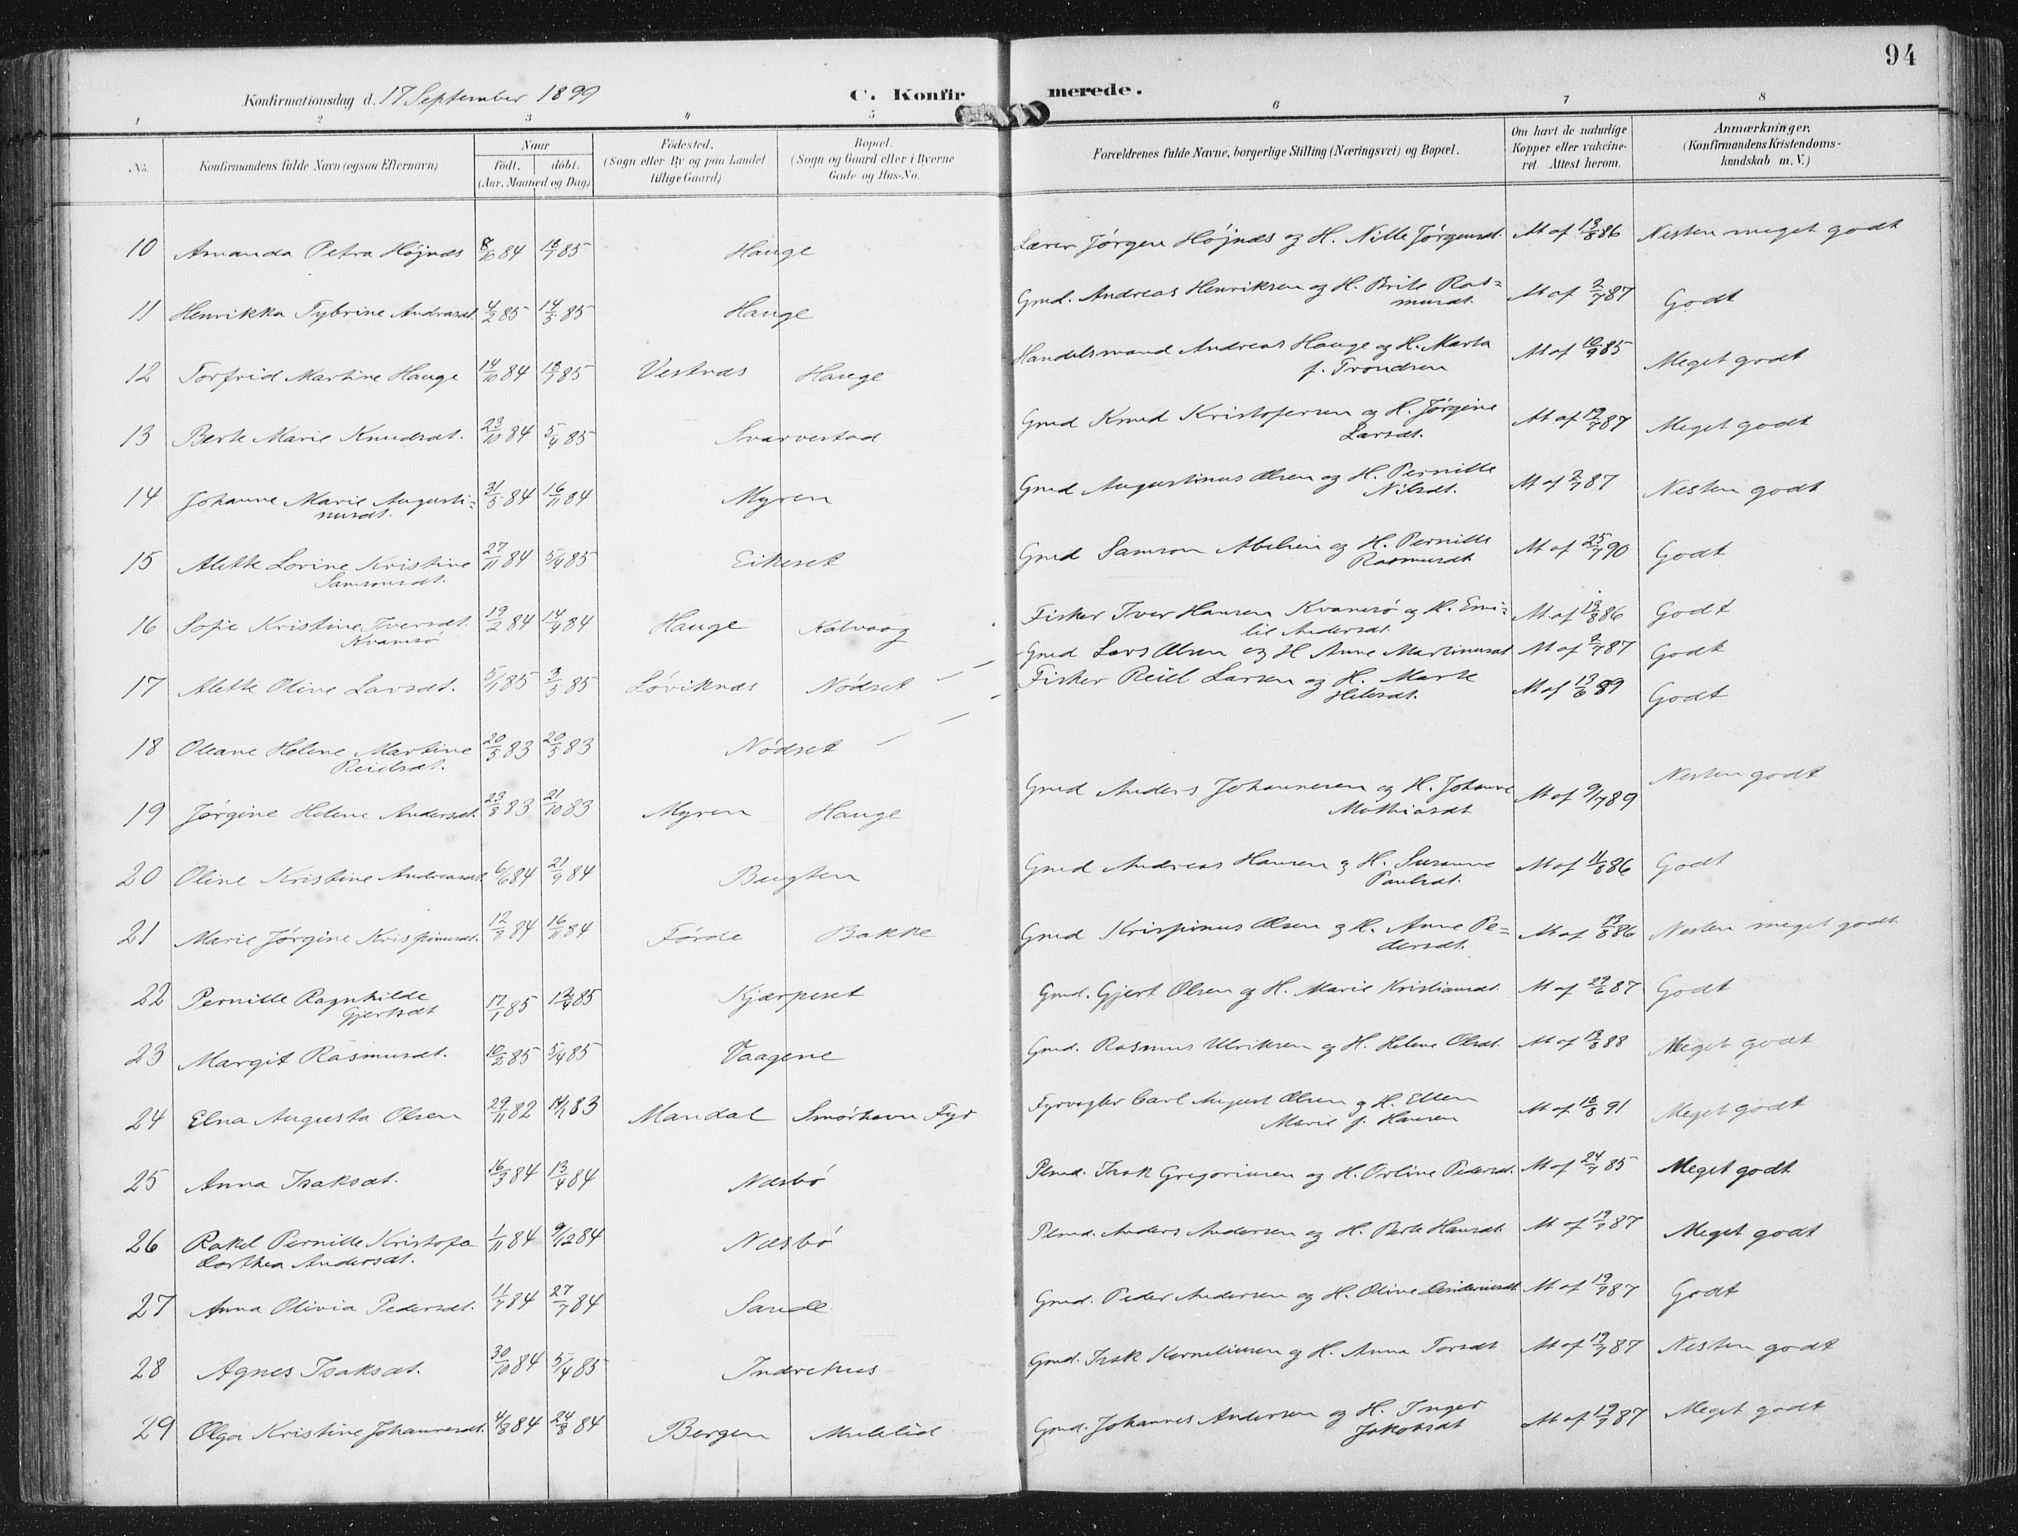 94
Konfirmationsdag d. 17 September 1899
C. Konfirmerede.
1 2 3 4 5 6 7 8
No. Konfirmandens fulde Navn (ogsaa Efternavn) Naar født. døbt. (Aar, Maaned og Dag) Fødested. (Sogn eller By og paa Landet tillige Gaard) Bopæl. (Sogn og Gaard eller i Byerne Gade og Hus-No. Forældrenes fulde Navne, borgerlige Stilling (Næringsvei) og Bopæl. Om havt de naturlige Kopper eller vakcineret. Attest herom. Anmærkninger. (Konfirmandens Kristendomskundskab m. V.)
10 Amanda Petra Højnæs 8/10 84 18/1 85 Hauge Lærer Jørgen Højnæs og H. Nille Jørgensdt. At af 13/8 86 Nesten meget godt
11 Henrikka Tybrine Andreasdt. 4/2 85 14/5 85 Hauge Gmd. Andreas Henriksen og H. Brite Ras=
musdt. At af 2/7 87 Godt
12 Torfrid Martine Hauge 14/10 84 18/1 85 Vestnæs Hauge Handelsmand Andreas Hauge og H. Marta
f. Trondsen At af 10/9 85 Meget godt
13 Berte Marie Knudsdt. 23/10 84 5/4 85 Svarvestad Gmd Knud Kristofersen og H. Jørgine
Larsdt. At af 19/7 87 Meget godt
14 Johanne Marie Augusti=
nusdt. 31/5 84 16/11 84 Myren Gmd Augustinus Olsen og H. Pernille
Nilsdt. At af 2/7 87 Nesten godt
15 Alette Lovine Kristine
Samsonsdt. 27/11 84 5/4 85 Eikeset Gmd Samson Abelsen og H. Pernille
Rasmusdt At af 25/7 90 Godt
16 Sofie Kristine Iversdt.
Kvamsø 19/2 84 14/4 84 Hauge Kalvaag Fisker Iver Hansen Kvamsø og H. Emi=
lie Andersdt. At af 13/8 86 Godt
17 Alette Oline Larsdt. 5/1 85 3/5 85 Løviknæs Nødset Gmd Lars Olsen og H Anne Martinusdt At af 2/7 87 Godt
18 Oleane Helene Martine
Reielsdt. 20/5 83 20/5 83 Nødset Fisker Reiel Larsen og H. Marte
At af 13/6 89 Godt
19 Jørgine Helene Andersdt. 23/3 83 21/10 83 Myren Hauge Gmd Anders Johannesen og H. Johanne
Mathiasdt At af 9/7 89 Nesten godt
20 Oline Kristine Andreasdt 6/6 84 21/9 84 Bugten Gmd Andreas Hansen og H. Susanne
Paulsdt. At af 11/8 86 Godt
21 Marie Jørgine Krispinusdt. 12/8 84 16/11 84 Førde Bakke Gmd Krispinus Olsen og H. Anne Pe=
dersdt. At af 13/8 86 Nesten meget godt
22 Pernille Ragnhilde
Gjertsdt 17/1 85 12/4 85 Kjærpeset Gmd. Gjert Olsen og H. Marie Kristiansdt. At af 29/6 87 Godt
23 Margit Rasmusdt. 10/2 85 5/4 85 Vaagene Gmd. Rasmus Ulriksen og H. Helene Olsdt. At af 13/8 88 Meget godt
24 Elna Augusta Olsen 29/11 82 14/1 83 Mandal Smørhavn Fyr Fyrvogter Carl August Olsen og H. Ellen
Marie f. Hansen At af 18/8 91 Meget godt
25 Anna Isaksdt. 16/3 84 13/4 84 Næsbø Plmd. Isak Gregoriusen og H. Orline Pedersdt. At af 24/7 85 Meget godt
26 Rakel Pernille Kristofa
Dorthea Andersdt. 1/11 84 9/12 84 Næsbø Plmd. Anders Andersen og H. Berte Hansdt. At af 19/7 87 Meget godt
27 Anna Olivia Pedersdt. 11/7 84 27/7 84 Sande Gmd. Peder Andersen og H. Oline At af 19/7 87 Godt
28 Agnes Isaksdt. 30/10 84 5/4 85 Indrehus Gmd. Isak Korneliusen og H. Anna Torsdt At af 19/7 87 Nesten godt
29 Olga Kristine Johannesdt. 4/3 84 24/8 84 Bergen Mulelid Gmd. Johannes Andersen og H. Inger
Jakobsdt At af 19/7 87 Meget godt